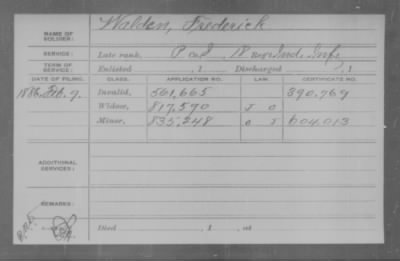 NAME OF SOLDIER: Walden, Frederick
SERVICE: Late rank, P Co I, 18 Reg't Ind. Inf.
TERM OF SERVICE: Enlisted , 1 Discharged , 1
DATE OF FILING. CLASS. APPLICATION NO. LAW. CERTIFICATE NO.
1886. Feb. 9. Invalid. 561,665 390,769
Widow. 817,590 J O
Minor. 835,248 O J 604.013
ADDITIONAL SERVICES:
REMARKS:
Died , 1 , at